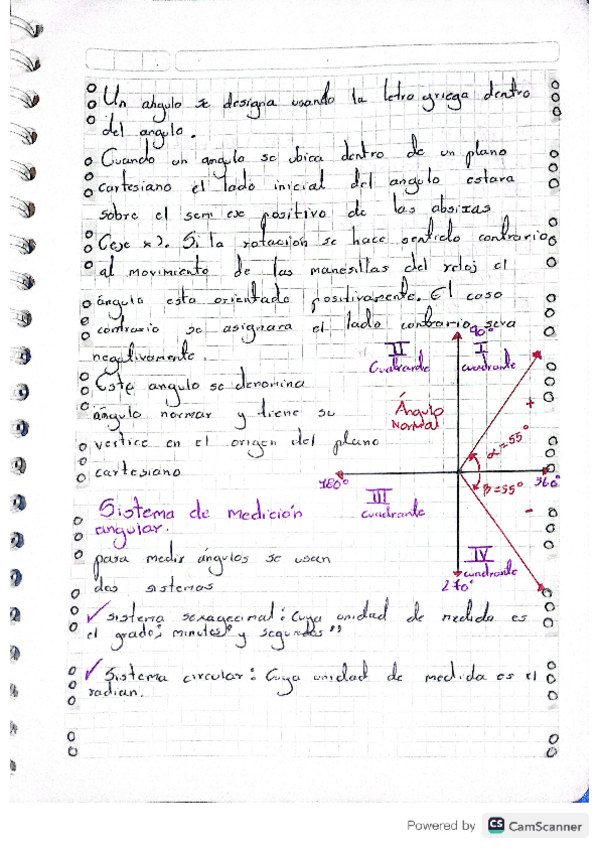 Un angulo se designa usando la letra griega dentro
del angulo.
Cuando un angulo se ubica dentro de un plano
cartesiano el lado inicial del angulo estara
sobre el sem eje positivo de las absixas
(eje x). Si la rotación se hace sentido contrario
al movimiento de las manesillas del reloj el
ángulo esta orientado positivamente. El caso
contrario se asignara el lado contrario sera
negativamente.
Este angulo se denomina
ángulo normar y tiene su
vertice en el origen del plano
cartesiano
90°
II
I
cuadrante
Ángulo
Normal
+
α=55°
180°
360°
β=55°
III
cuadrante
-
IV
cuadrante
270°
Sistema de medición
angular.
para medir ángulos se usan
dos sistemas
✓ sistema sexagecimal: Cuya unidad de medida es
el grado; minutos' y segundos''
✓ Sistema circular: Cuya unidad de medida es el
radian.
Powered by CS CamScanner